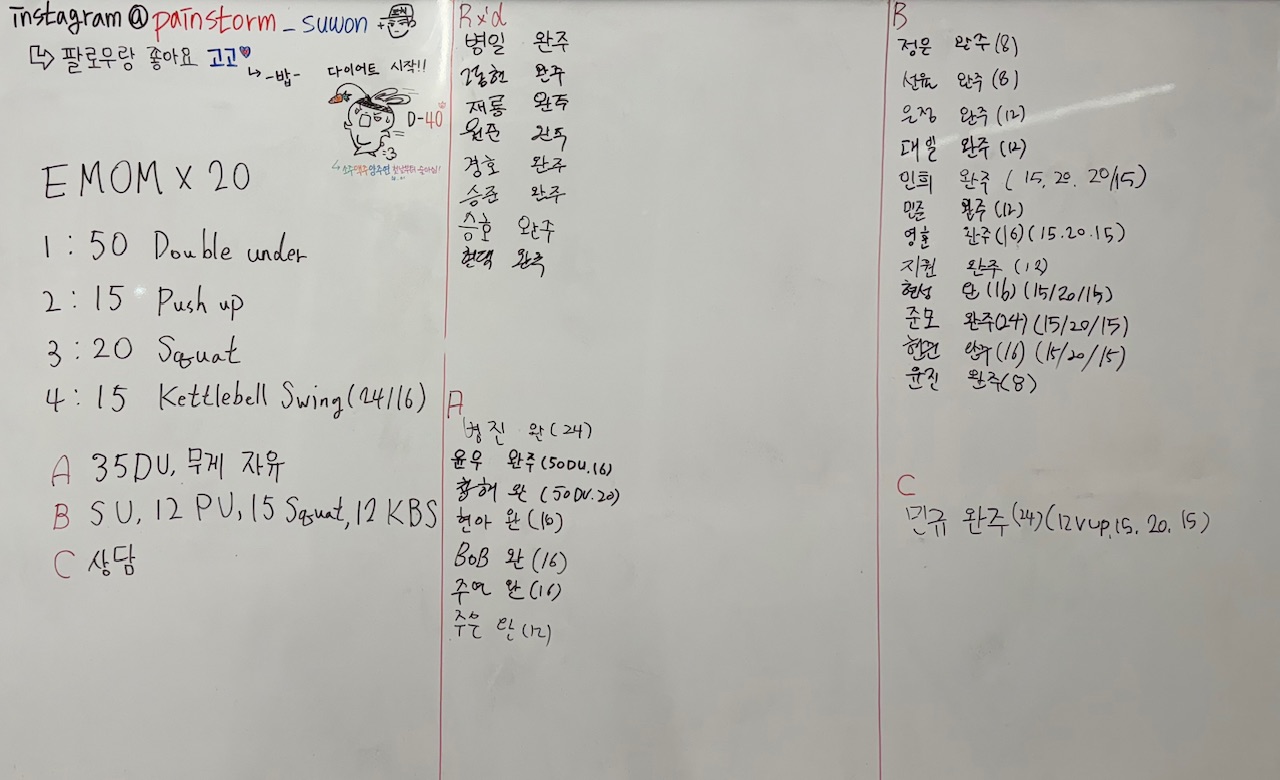 instagram@painstorm_suwon +
팔로우랑 좋아요 고고
-밥-
다이어트 시작!!
D-40
:3
EMOM X 20
1 : 50 Double under
2 : 15 Push up
3 : 20 Squat
4 : 15 Kettlebell Swing(24/16)
A 35DU, 무게 자유
B SU, 12 PU, 15 Squat, 12 KBS
C 상담
Rx'd
병일 완주
완주
재룡 완주
원준 완주
경호 완주
승준 완주
승호 완주
현택 완주
A
병진 완(24)
윤우 완주(50DU.16)
완 (50DU.20)
현아 완(16)
BOB 완(16)
주연 완(16)
주은 완(12)
B
정은 완주(8)
선유 완주(8)
은정 완주(12)
대일 완주(12)
민희 완주 ( 15. 20. 20/15)
민준 완주(12)
영호 완주(16)(15.20.15)
지원 완주 (12)
현성 완(16)(15/20/15)
준모 완주(24)(15/20/15)
완주(16)(15/20/15)
윤진 완주(8)
C
민규 완주(24)(12Vup, 15. 20. 15)